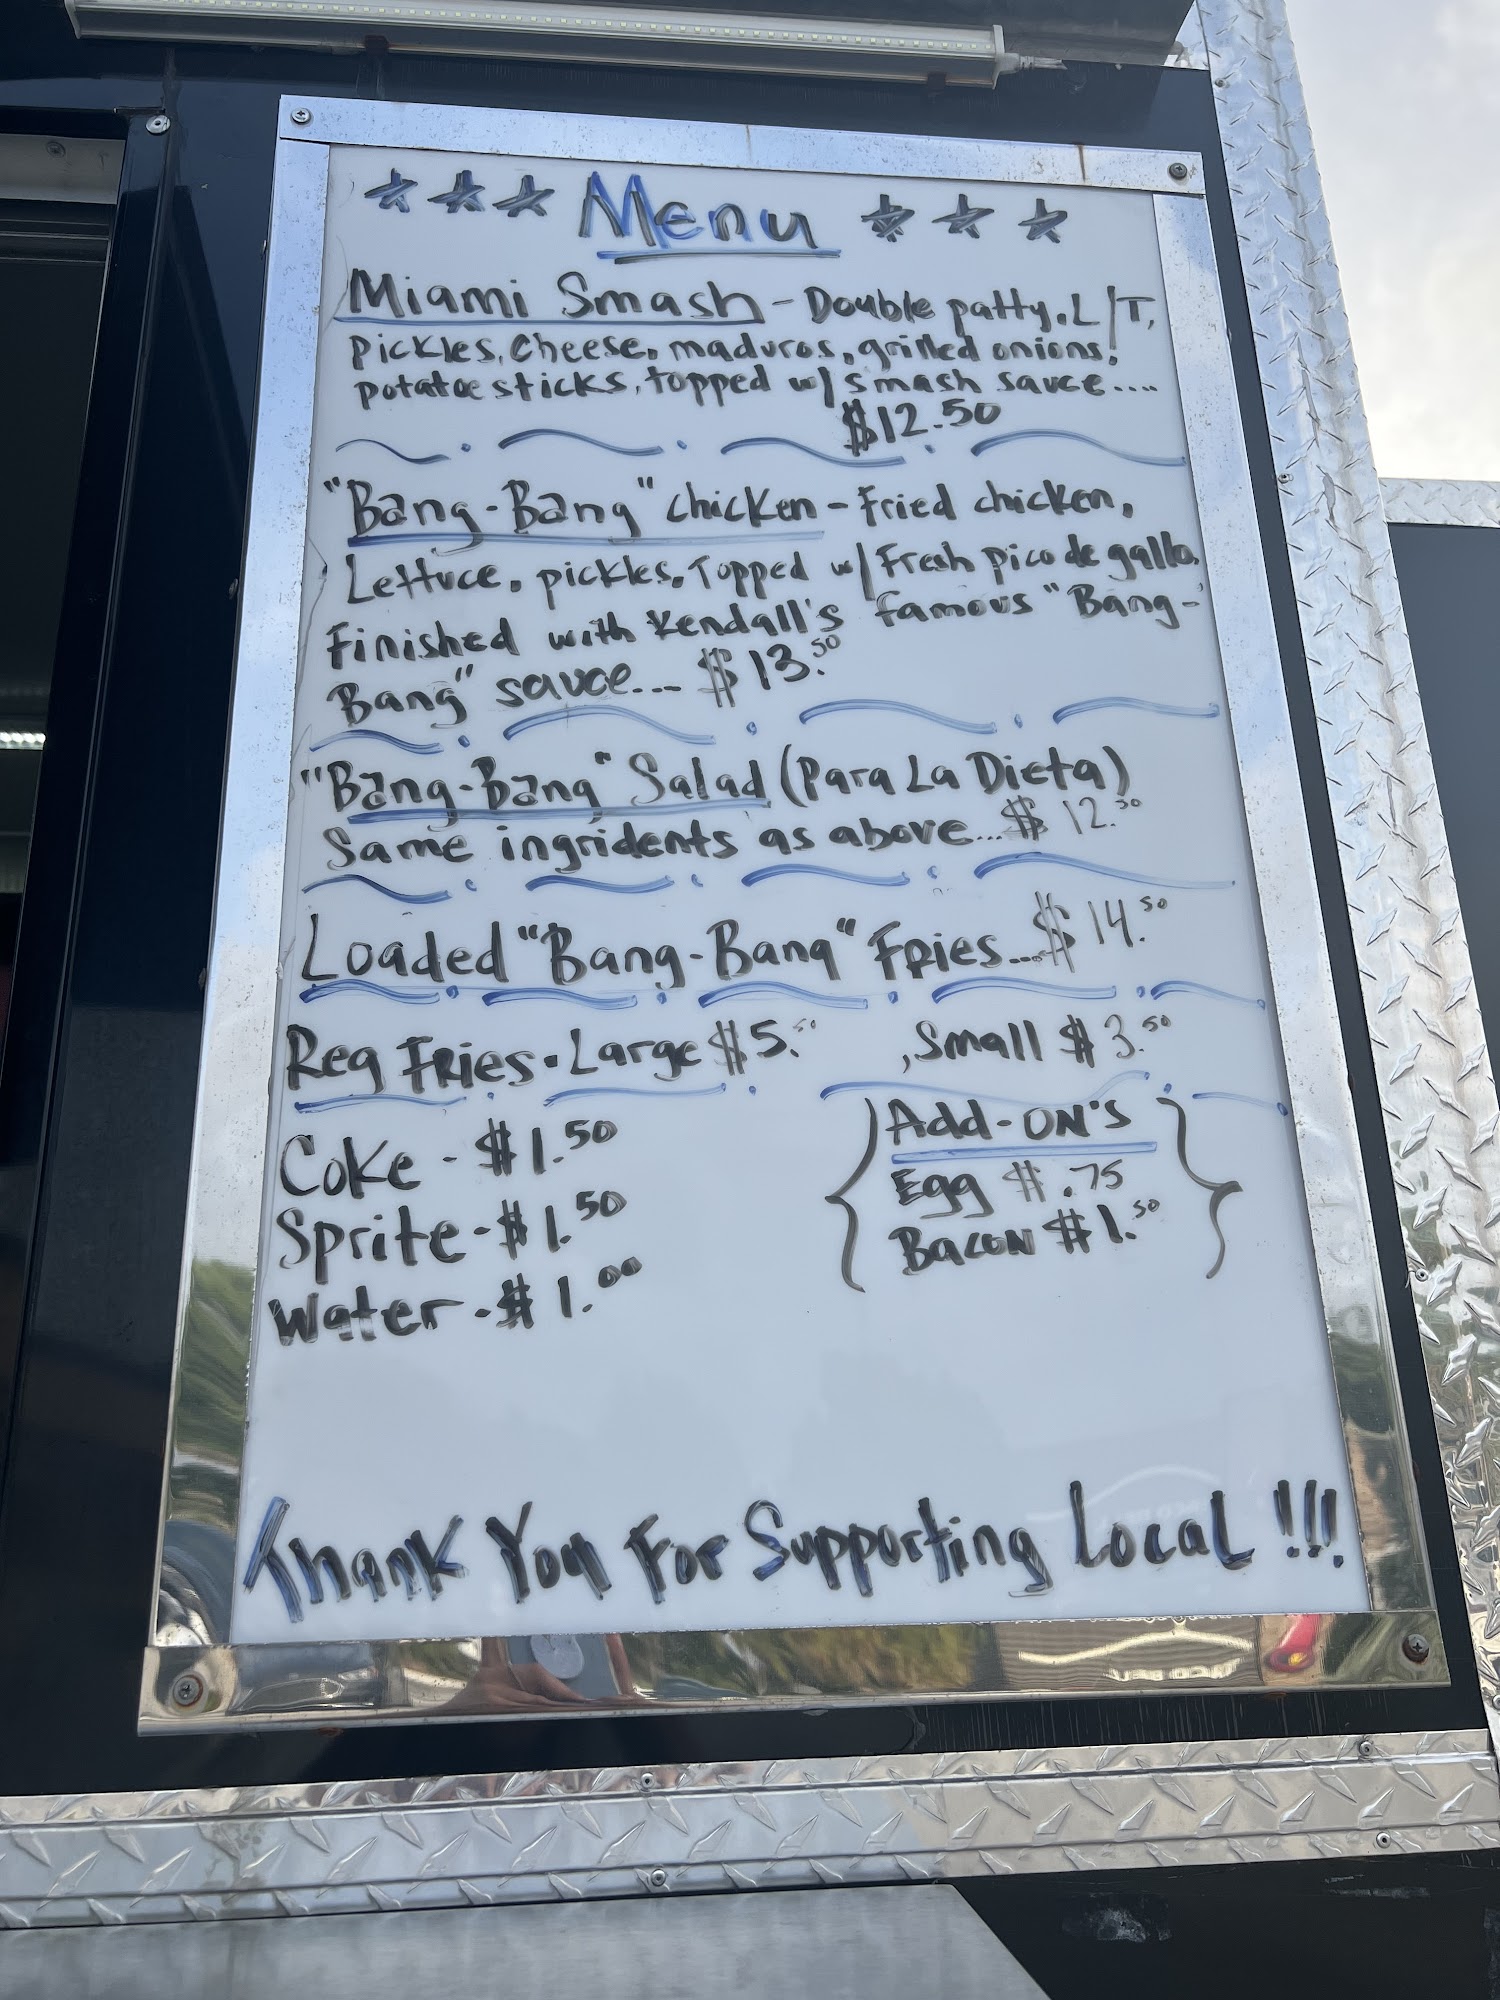 *** Menu ***
Miami Smash - Double patty, L/T,
pickles, cheese, maduros, grilled onions,
potatoe sticks, topped w/ smash sauce....
$12.50
"Bang-Bang" chicken - Fried chicken,
Lettuce, pickles, Topped w/ Fresh pico de gallo,
Finished with Kendall's famous "Bang-
Bang" sauce... $13.50
"Bang-Bang" Salad (Para La Dieta)
Same ingridents as above... $12.50
Loaded "Bang-Bang" Fries... $14.50
Reg Fries - Large $5.50, Small $3.50
Coke - $1.50
Sprite - $1.50
Water - $1.00
Add-ON'S
Egg $.75
Bacon $1.50
Thank You For Supporting Local !!!!